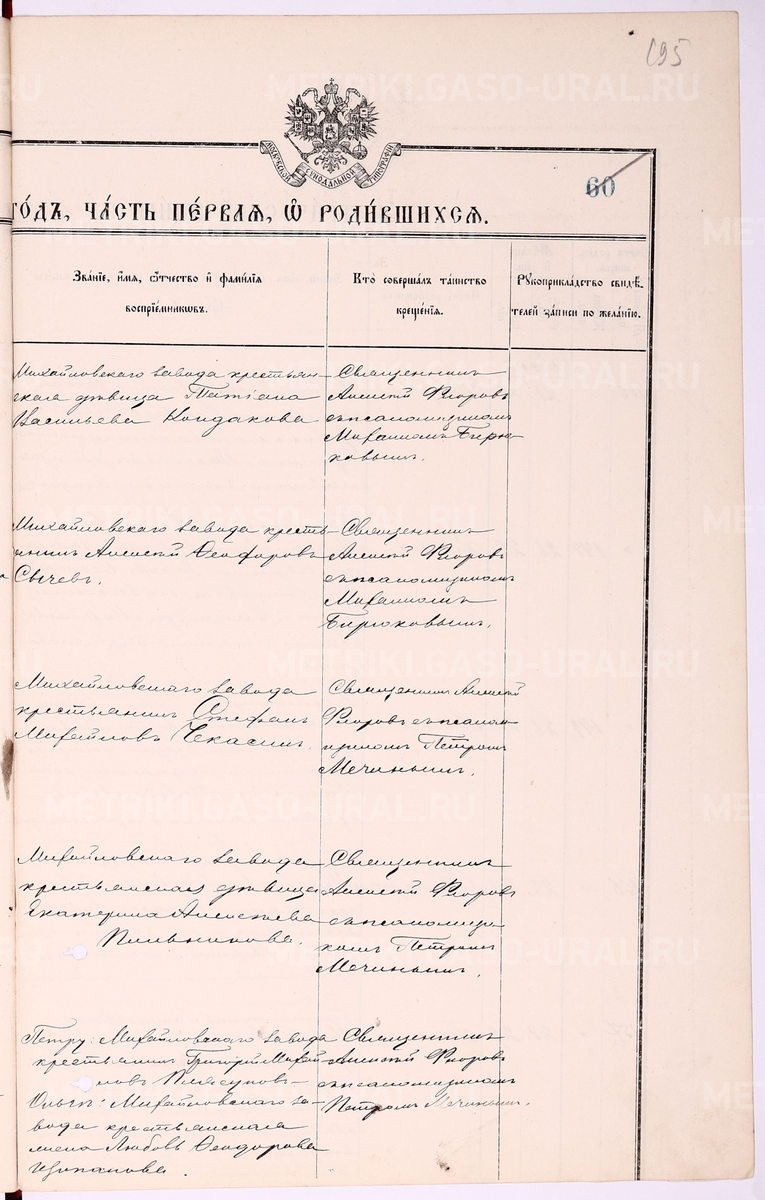 195
METRIKI.GASO-URAL.RU
МОСКОВСКОЙ СѴНОДАЛЬНОЙ ТИПОГРАФІИ
60
ГО́ДЪ, ЧА́СТЬ ПЕ́РВАЯ, Ѡ҆ РОДИ́ВШИХСЯ.
Зва́нїе, и҆́мя, ѻ҆́тчество и҆ фами́лїя
воспрїе́мниковъ.
Кто̀ соверша́лъ та́инство
креще́нїя.
Рꙋкоприкла́дство свидѣ́-
телей за́писи по жела́нїю.
Михайловскаго завода крестьян
ская дѣвица Татіана
Васильева Кондакова
Священникъ
Алексій Флоровъ
съ псаломщикомъ
Михаиломъ Бирю
ковымъ.
Михайловскаго завода кресть-
янинъ Алексій Феодоровъ
Сычевъ.
Священникъ
Алексій Флоровъ
съ псаломщикомъ
Михаиломъ
Бирюковымъ.
Михайловскаго завода
крестьянинъ Стефанъ
Михайловъ Чекасинъ.
Священникъ Алексій
Флоровъ съ псалом-
щикомъ Петромъ
Мечинымъ.
Михайловскаго завода
крестьянская дѣвица
Екатерина Алексѣева
Пильникова.
Священникъ
Алексій Флоровъ
съ псаломщи-
комъ Петромъ
Мечинымъ.
Петру: Михайловскаго завода
крестьянинъ Григорій Михай
ловъ Плясуновъ-
Ольгѣ: Михайловскаго за-
вода крестьянская
жена Любовь Феодорова
Священникъ
Алексій Флоровъ
съ псаломщикомъ
Петромъ Мечинымъ.